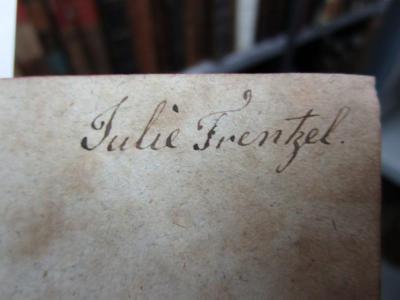 Julie Frentzel.